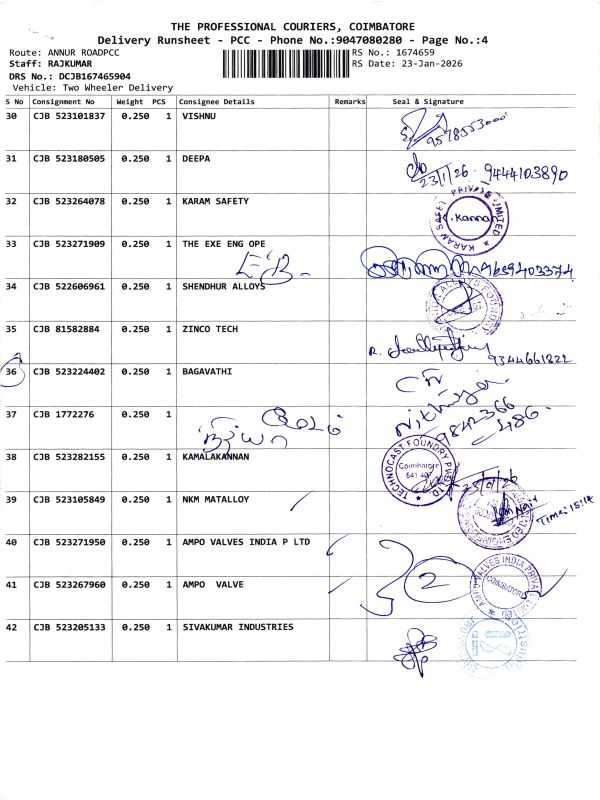 THE PROFESSIONAL COURIERS, COIMBATORE
Delivery Runsheet - PCC - Phone No.:9047080280 - Page No.:4
Route: ANNUR ROADPCC RS No.: 1674659
Staff: RAJKUMAR RS Date: 23-Jan-2026
DRS No.: DCJB167465904
Vehicle: Two Wheeler Delivery
S No Consignment No Weight PCS Consignee Details Remarks Seal & Signature
30 CJB 523101837 0.250 1 VISHNU
9578553000
31 CJB 523180505 0.250 1 DEEPA
23/1/26 9444103890
32 CJB 523264078 0.250 1 KARAM SAFETY
KARAM SAFETY PRIVATE LIMITED
Kannan
33 CJB 523271909 0.250 1 THE EXE ENG OPE
EB 9659403374
34 CJB 522606961 0.250 1 SHENDHUR ALLOYS
35 CJB 81582884 0.250 1 ZINCO TECH
R. 9344661822
36 CJB 523224402 0.250 1 BAGAVATHI
37 CJB 1772276 0.250 1
9842366
486
38 CJB 523282155 0.250 1 KAMALAKANNAN
TECHNOCAST FOUNDRY PVT
Coimbatore
39 CJB 523105849 0.250 1 NKM MATALLOY
Time: 15:14
40 CJB 523271950 0.250 1 AMPO VALVES INDIA P LTD
2
41 CJB 523267960 0.250 1 AMPO VALVE
AMPO VALVES INDIA PRIVATE
COIMBATORE
42 CJB 523205133 0.250 1 SIVAKUMAR INDUSTRIES